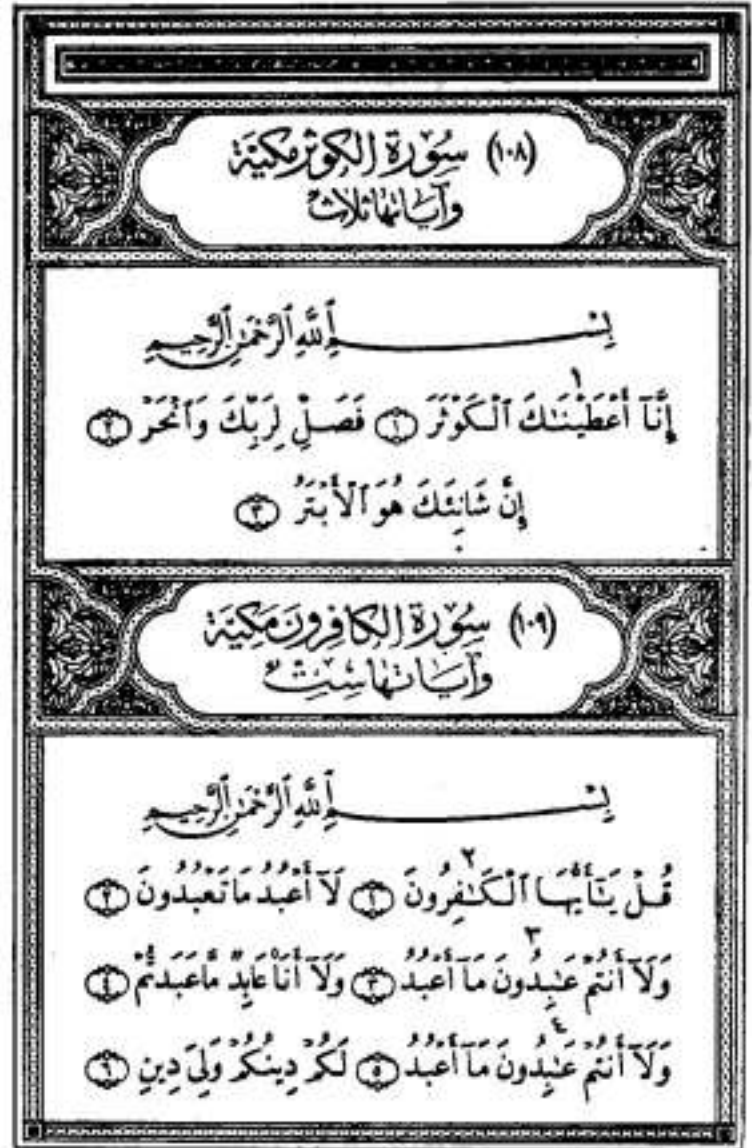 (١٠٨) سُورَة الكوثر مكية
وآياتها ثلاث
بِسْمِ اللَّهِ الرَّحْمَٰنِ الرَّحِيمِ
١
إِنَّآ أَعْطَيْنَـٰكَ ٱلْكَوْثَرَ ۝١ فَصَلِّ لِرَبِّكَ وَٱنْحَرْ ۝٢
إِنَّ شَانِئَكَ هُوَ ٱلْأَبْتَرُ ۝٣
(١٠٩) سُورَة الكافرون مكية
وآياتها ست
بِسْمِ اللَّهِ الرَّحْمَٰنِ الرَّحِيمِ
٢
قُلْ يَـٰٓأَيُّهَا ٱلْكَـٰفِرُونَ ۝١ لَآ أَعْبُدُ مَا تَعْبُدُونَ ۝٢
٣
وَلَآ أَنتُمْ عَـٰبِدُونَ مَآ أَعْبُدُ ۝٣ وَلَآ أَنَا۠ عَابِدٌ مَّا عَبَدتُّمْ ۝٤
٤
وَلَآ أَنتُمْ عَـٰبِدُونَ مَآ أَعْبُدُ ۝٥ لَكُمْ دِينُكُمْ وَلِىَ دِينِ ۝٦